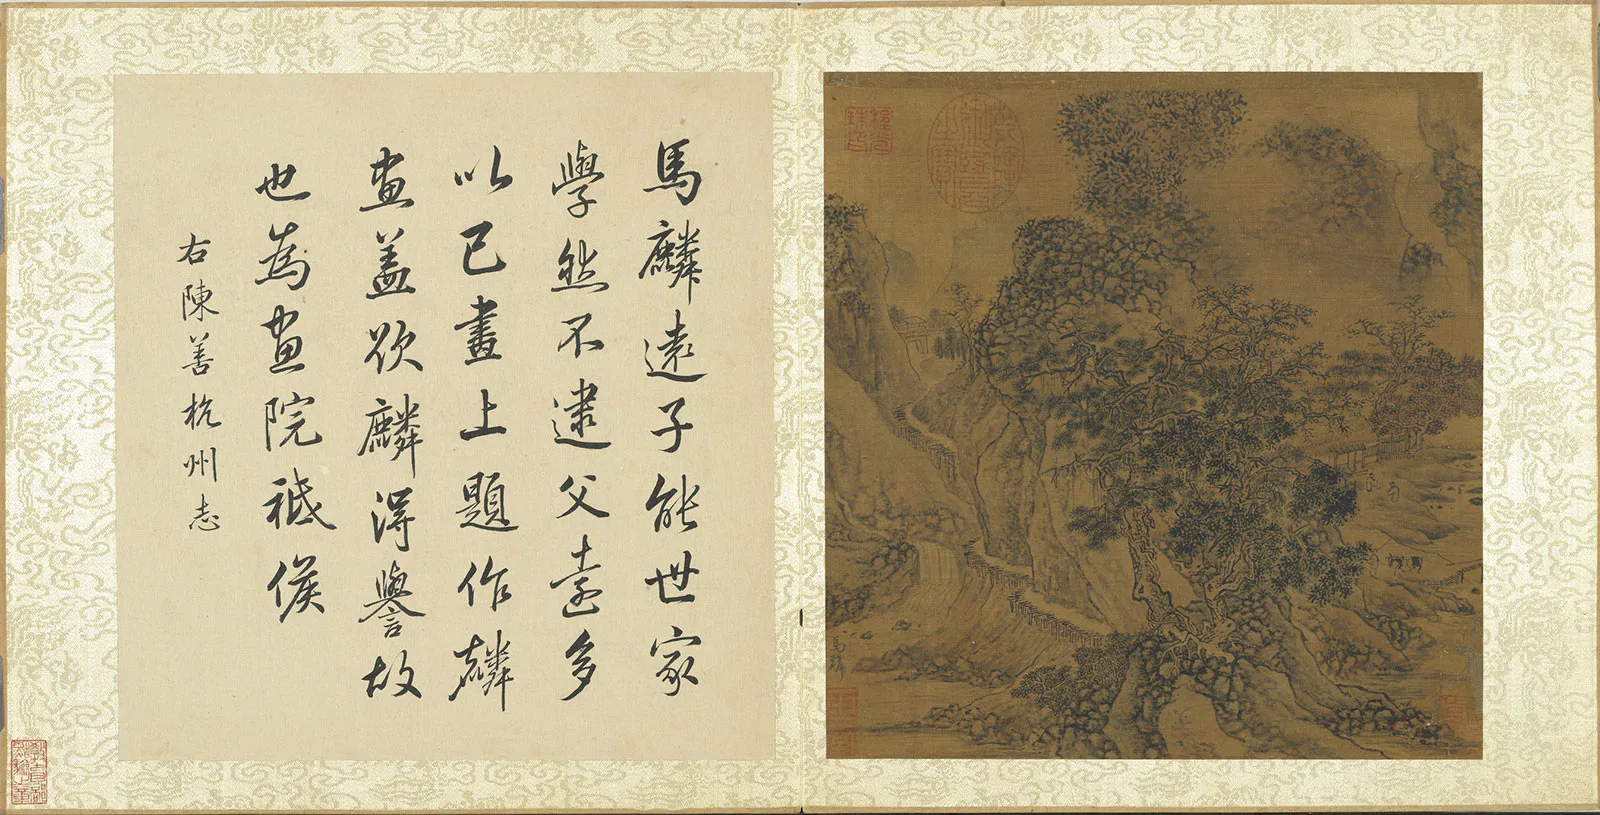 馬麟遠子能世家
學然不逮父遠多
以己畫上題作麟
畫盖欲麟得譽故
也為畫院祗候
右陳善杭州志
馬麟